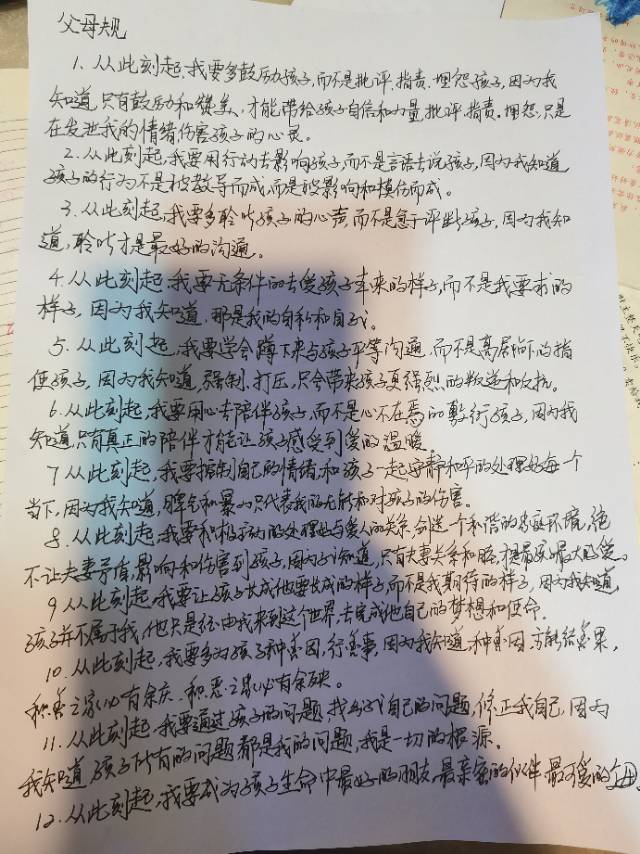 父母规
1. 从此刻起,我要多鼓励孩子,而不是批评、指责、埋怨孩子,因为我
知道,只有鼓励和赞美,才能带给孩子自信和力量批评、指责、埋怨,只是
在发泄我的情绪伤害孩子的心灵。
2. 从此刻起,我要用行动去影响孩子,而不是言语去说孩子,因为我知道
孩子的行为不是被教导而成,而是被影响和模仿而成。
3. 从此刻起,我要多聆听孩子的心声,而不是急于评断孩子,因为我知
道,聆听才是最好的沟通。
4. 从此刻起,我要无条件的去爱孩子本来的样子,而不是我要求的
样子,因为我知道,那是我的自私和自我。
5. 从此刻起,我要学会蹲下来与孩子平等沟通,而不是高居临下的指
使孩子,因为我知道,强制、打压,只会带来孩子更强烈的叛逆和反抗。
6. 从此刻起,我要用心去陪伴孩子,而不是心不在焉的敷衍孩子,因为我
知道只有真正的陪伴才能让孩子感受到爱的温暖。
7 从此刻起,我要控制自己的情绪,和孩子一起宁静和平的处理好每一个
当下,因为我知道,脾气和暴力只代表我的无能和对孩子的伤害。
8. 从此刻起,我要积极主动的处理好与爱人的关系,创造一个和谐的家庭环境,绝
不让夫妻矛盾影响和伤害到孩子,因为我知道,只有夫妻关系和睦,才是最大的爱。
9 从此刻起,我要让孩子长成他要长成的样子,而不是我期待的样子,因为我知道,
孩子并不属于我,他只是经由我来到这个世界,去完成他自己的梦想和使命。
10. 从此刻起,我要多为孩子种善因,行善事,因为我知道,种善因,方能结善果,
积善之家必有余庆、积恶之家必有余殃。
11. 从此刻起,我要通过孩子的问题,找到自己的问题,修正我自己,因为
我知道,孩子所有的问题都是我的问题,我是一切的根源。
12. 从此刻起,我要成为孩子生命中最好的朋友,最亲密的伙伴,最可爱的父母